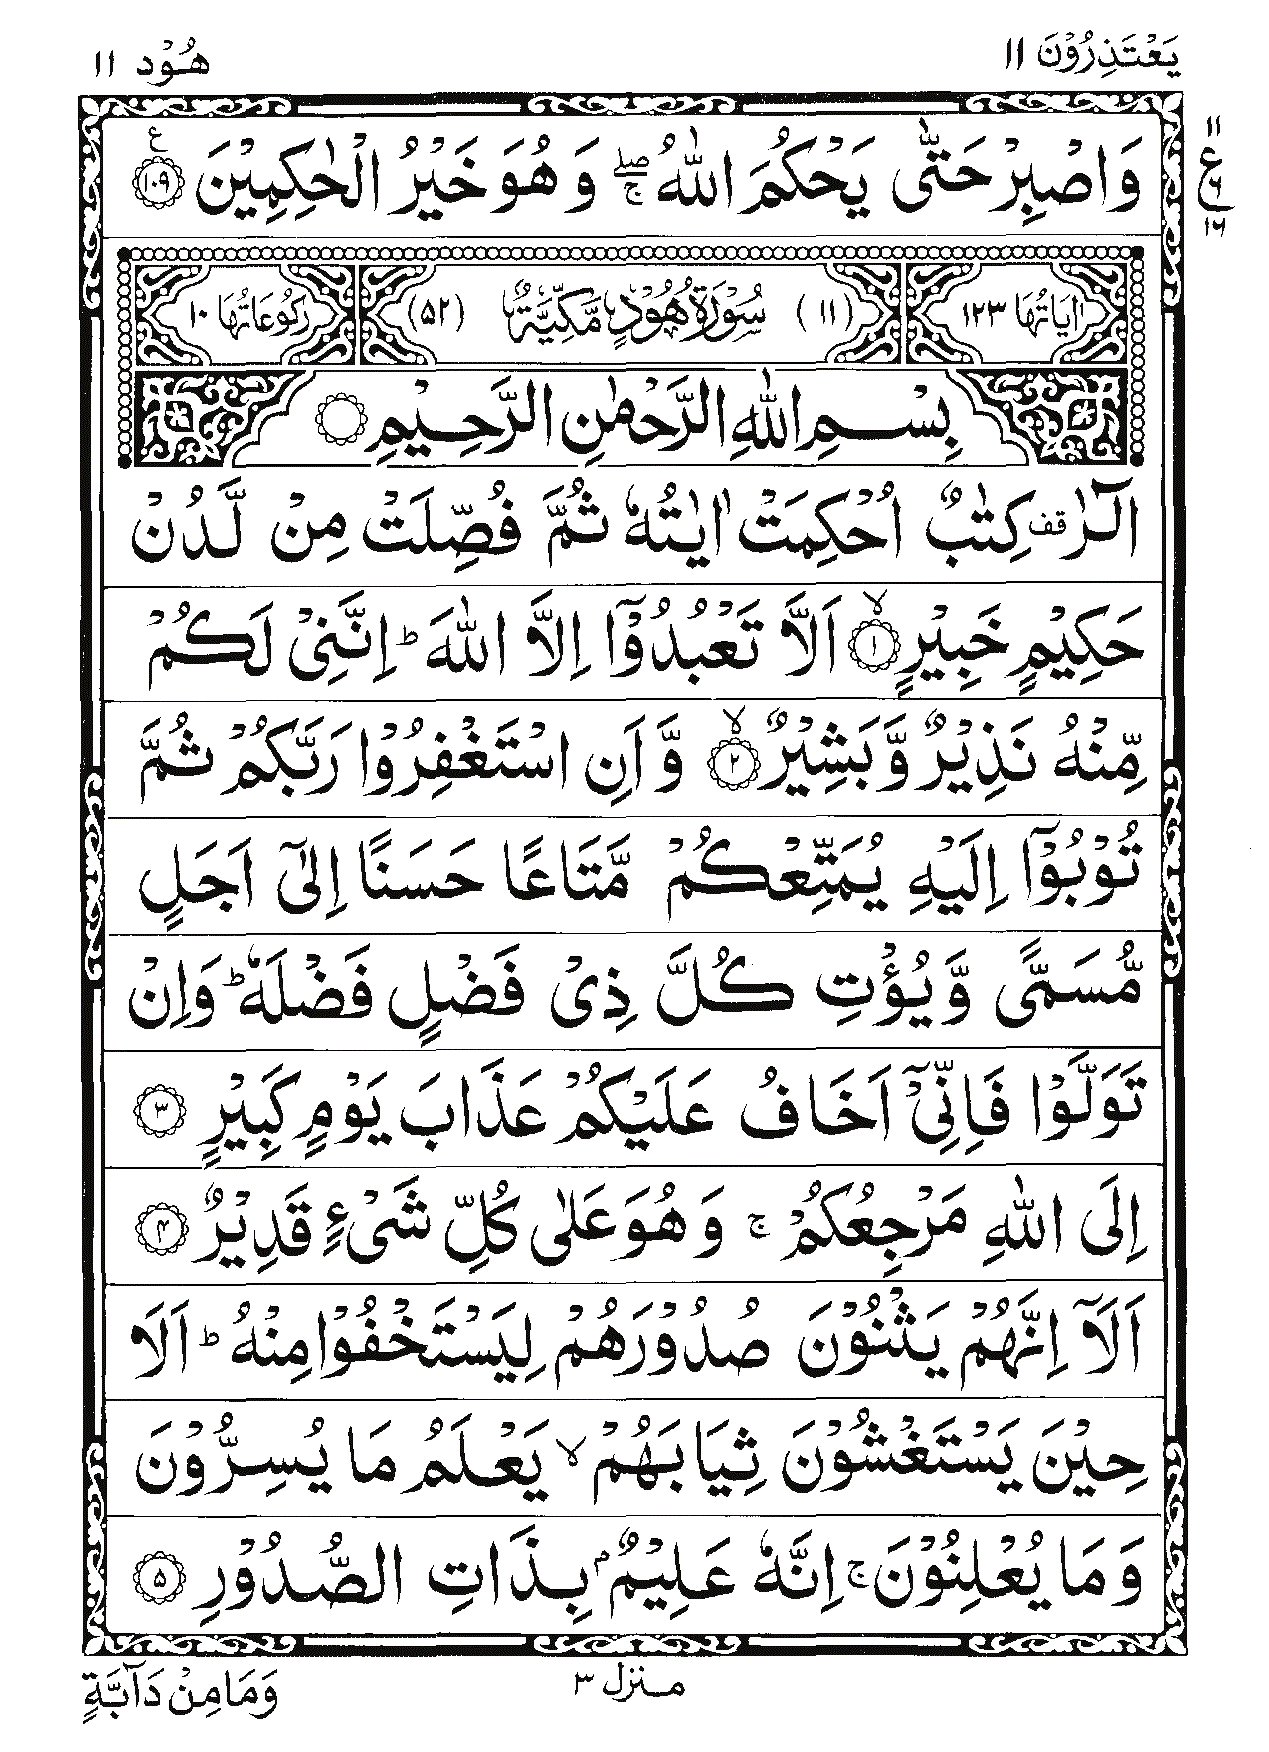 يَعْتَذِرُوْنَ ١١ هُوْد ١١
١١
ع
٦
١٦
وَاصْبِرْ حَتّٰى يَحْكُمَ اللّٰهُ ۖۚ وَهُوَ خَيْرُ الْحٰكِمِيْنَ ﴿۱۰۹﴾ ع
اٰيَاتُهَا ١٢٣ (١١) سُوْرَةُ هُوْدٍ مَّكِّيَّةٌ (۵۲) رُكُوْعَاتُهَا ١٠
بِسْمِ اللّٰهِ الرَّحْمٰنِ الرَّحِيْمِ
الٓرٰ ۟ قف كِتٰبٌ اُحْكِمَتْ اٰيٰتُهٗ ثُمَّ فُصِّلَتْ مِنْ لَّدُنْ
حَكِيْمٍ خَبِيْرٍ ﴿۱﴾ ۙ اَلَّا تَعْبُدُوْٓا اِلَّا اللّٰهَ ؕ اِنَّنِيْ لَكُمْ
مِّنْهُ نَذِيْرٌ وَّبَشِيْرٌ ﴿۲﴾ ۙ وَّاَنِ اسْتَغْفِرُوْا رَبَّكُمْ ثُمَّ
تُوْبُوْٓا اِلَيْهِ يُمَتِّعْكُمْ مَّتَاعًا حَسَنًا اِلٰٓى اَجَلٍ
مُّسَمًّى وَّيُؤْتِ كُلَّ ذِيْ فَضْلٍ فَضْلَهٗ ؕ وَاِنْ
تَوَلَّوْا فَاِنِّيْٓ اَخَافُ عَلَيْكُمْ عَذَابَ يَوْمٍ كَبِيْرٍ ﴿۳﴾
اِلَى اللّٰهِ مَرْجِعُكُمْ ۚ وَهُوَ عَلٰى كُلِّ شَيْءٍ قَدِيْرٌ ﴿۴﴾
اَلَآ اِنَّهُمْ يَثْنُوْنَ صُدُوْرَهُمْ لِيَسْتَخْفُوْا مِنْهُ ؕ اَلَا
حِيْنَ يَسْتَغْشُوْنَ ثِيَابَهُمْ ۙ يَعْلَمُ مَا يُسِرُّوْنَ
وَمَا يُعْلِنُوْنَ ۚ اِنَّهٗ عَلِيْمٌۢ بِذَاتِ الصُّدُوْرِ ﴿۵﴾
منزل ٣
وَمَا مِنْ دَآبَّةٍ